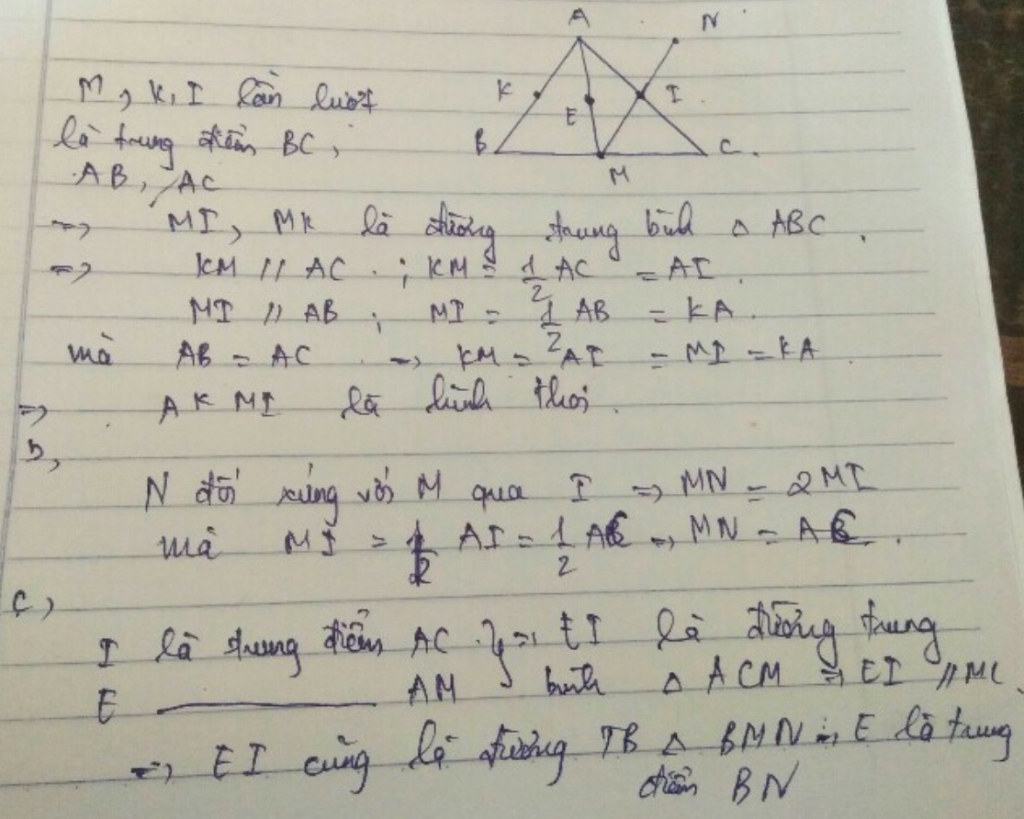 A N
K E I
B M C.
M, K, I lần lượt
là trung điểm BC,
AB, AC
=> MI, MK là đường trung bình Δ ABC.
=> KM // AC ; KM = 1/2 AC = AI.
MI // AB ; MI = 1/2 AB = KA.
mà AB = AC => KM = AI = MI = KA.
=> AKMI là hình thoi.
b,
N đối xứng với M qua I => MN = 2MI
mà MI = AI = 1/2 AC => MN = AC.
c,
I là trung điểm AC } => EI là đường trung
E ——— AM bình Δ ACM => EI // MC
=> EI cũng là đường TB Δ BMN => E là trung
điểm BN